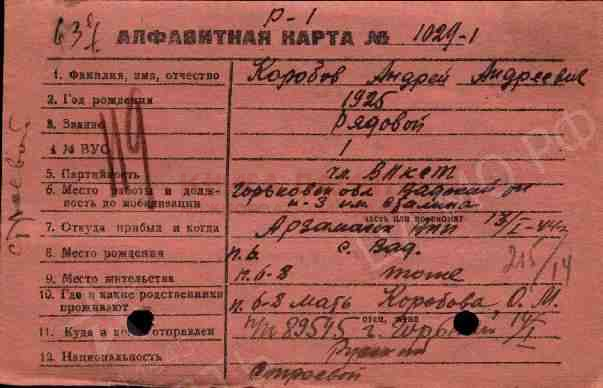 Р-1
63 г/
АЛФАВИТНАЯ КАРТА № 1029-1
1. Фамилия, имя, отчество Коробов Андрей Андреевич
2. Год рождения 1925
3. Звание рядовой
4. № ВУС 1
119
5. Партийность чл. ВЛКСМ
6. Место работы и должность до мобилизации Горьковск обл Вадский
к-з им. Сталина
часть или военкомат
7. Откуда прибыл и когда Арзамаск 13/I-44г
8. Место рождения п. 6. с. Вад.
215/14
9. Место жительства п. 6-8 тоже
10. Где и какие родственники проживают п. 6-8 мать Коробова О. М.
стан. жена
11. Куда и когда отправлен п/п 89545 г. Горький 14/I
12. Национальность Русский
Строевой
строевой